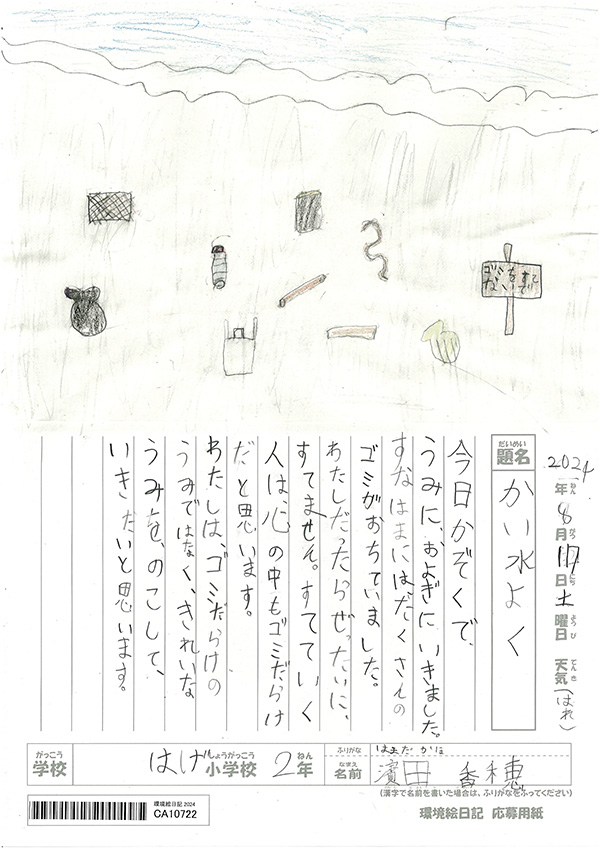 ゴミをすて
ないで
2024年8月17日土曜日 天気(はれ)
ねん
がつ
にち
ようび
てんき
だいめい
題名
かい水よく
今日かぞくで、
うみに、およぎにいきました。
すなはまには、たくさんの
ゴミがおちていました。
わたしだったらぜったいに、
すてません。すてていく
人は、心の中もゴミだらけ
だと思います。
わたしは、ゴミだらけの
うみではなく、きれいな
うみを、のこして、
いきたいと思います。
がっこう
学校
はげ小学校
しょうがっこう
2年
ねん
ふりがな
はまだ かほ
なまえ
名前
濱田 香穂
(漢字で名前を書いた場合は、ふりがなをふってください)
環境絵日記2024
CA10722
環境絵日記 応募用紙